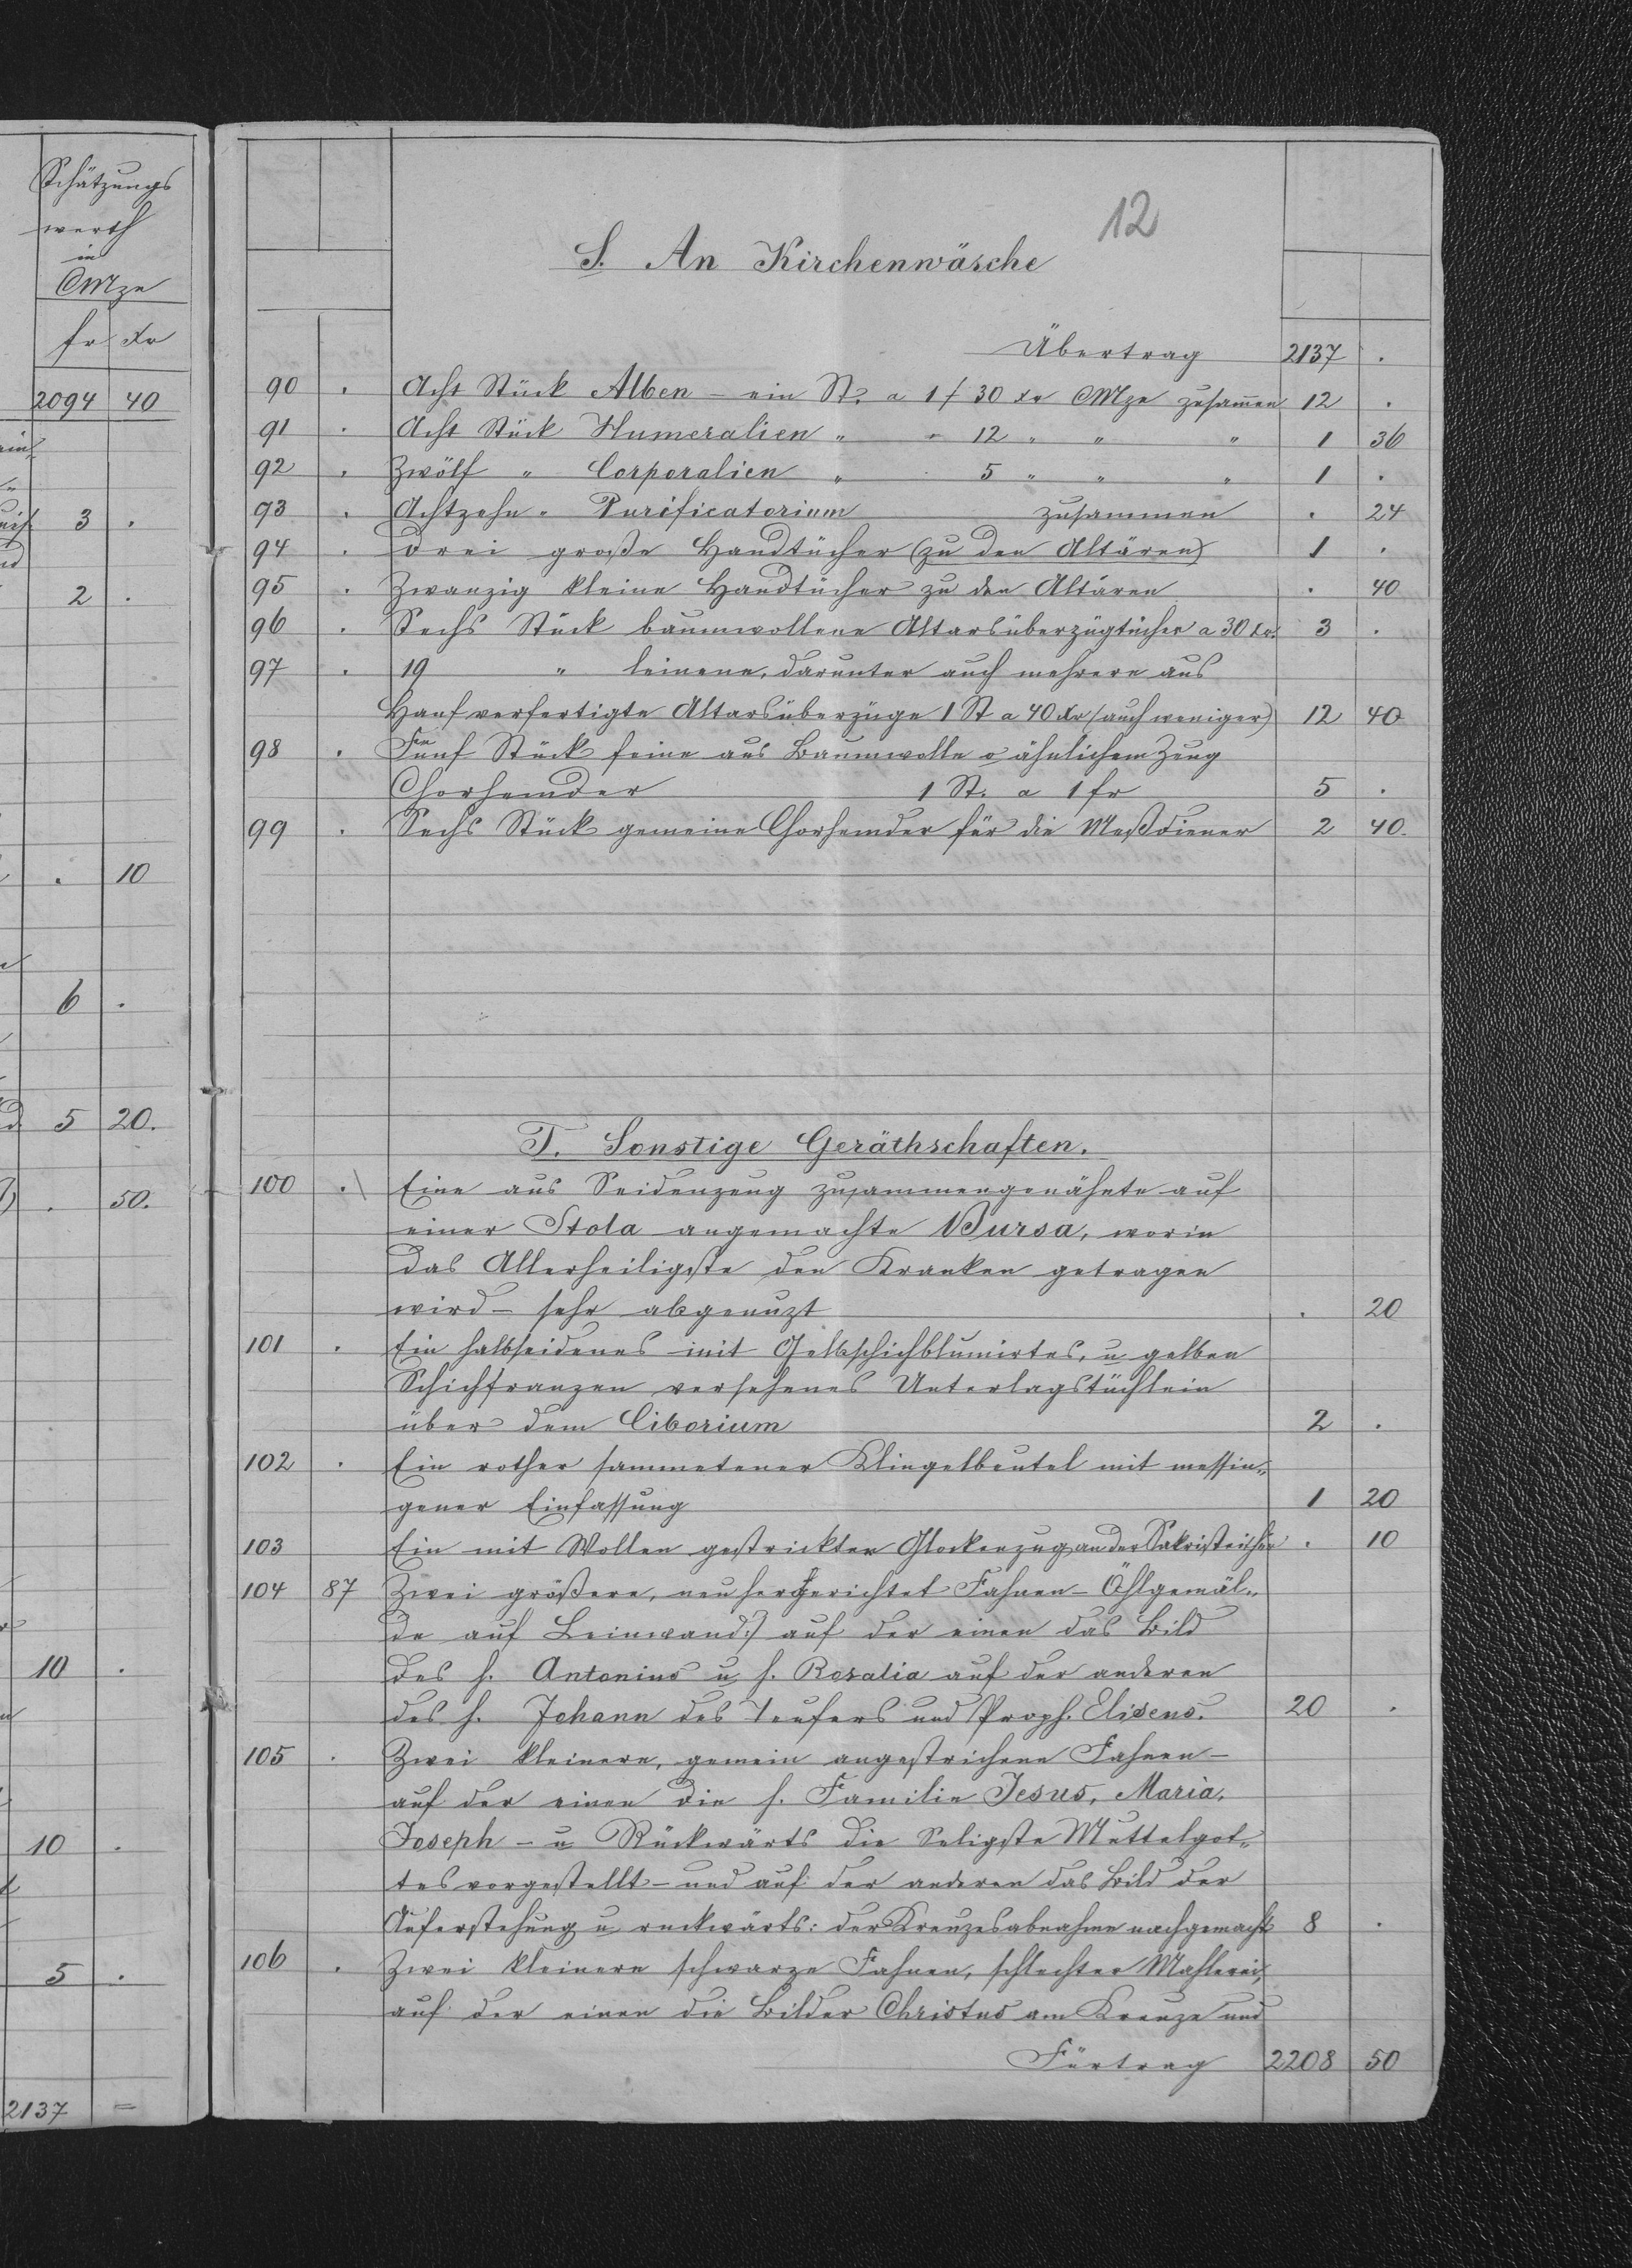 Schätzungs
werth
in
CMze
fr xr
2094 40
3 .
2 .
. 10
6 .
5 20.
. 50.
10 .
10 .
5 .
2137 =
12
S. An Kirchenwäsche
Übertrag 2137 .
90 . Acht Stück Alben - ein St. a 1 f 30 xr CMze zusammen 12 .
91 . Acht Stück Humeralien " " 12 " " " 1 36
92 . Zwölf " Corporalien " 5 " " " 1 .
93 . Achtzehn " Purificatorium zusammen . 24
94 . Drei große Handtücher (zu den Altären) 1 .
95 . Zwanzig kleine Handtücher zu den Altären . 40
96 . Sechs Stück baumwollene Altarsüberzügtücher a 30 xr. 3 .
97 . 19 " leinene, darunter auch mehrere aus
Hanf verfertigte Altarsüberzüge 1 St a 40 xr (auch weniger) 12 40
98 . Fünf Stück feine aus Baumwolle o ähnlichem Zeug
Chorhemder 1 St. a 1 fr 5 .
99 . Sechs Stück gemeine Chorhemder für die Meßdiener 2 40.
T. Sonstige Geräthschaften.
100 . / Eine aus Seidenzeug zusammengenähte auf
einer Stola angemachte Bursa, worin
das Allerheiligste den Kranken getragen
wird - sehr abgenuzt . 20
101 . Ein halbseidenes mit Gelbschichblumirtes, u gelben
Schichfranzen versehenes Unterlagstüchlein
über dem Ciborium 2 .
102 . Ein rother sammetener Klingelbeutel mit messin„
gener Einfassung 1 20
103 Ein mit Wollen gestrickter Glockenzug an der . 10
104 87 Zwei größere, neu hergerichtet Fahnen - Öhlgemäl„
de auf Leinwand:) auf der einen das Bild
des h. Antonius u h. Rosalia auf der anderen
des h. Johann des Teufers und Proph. Eliseus. 20 .
105 . Zwei kleinere, gemein angestrichene Fahnen -
auf der einen die h. Familie Jesus, Maria,
Joseph - u Rückwärts die Seligste Muttelgot„
tes vorgestellt - und auf der anderen das Bild der
Auferstehung u ruckwärts: der Kreuzesabnahme nachgemacht 8 .
106 . Zwei kleinere schwarze Fahnen, schlechter Mahlerei,
auf der einen die Bilder Christus am Kreuze und
Fürtrag 2208 50